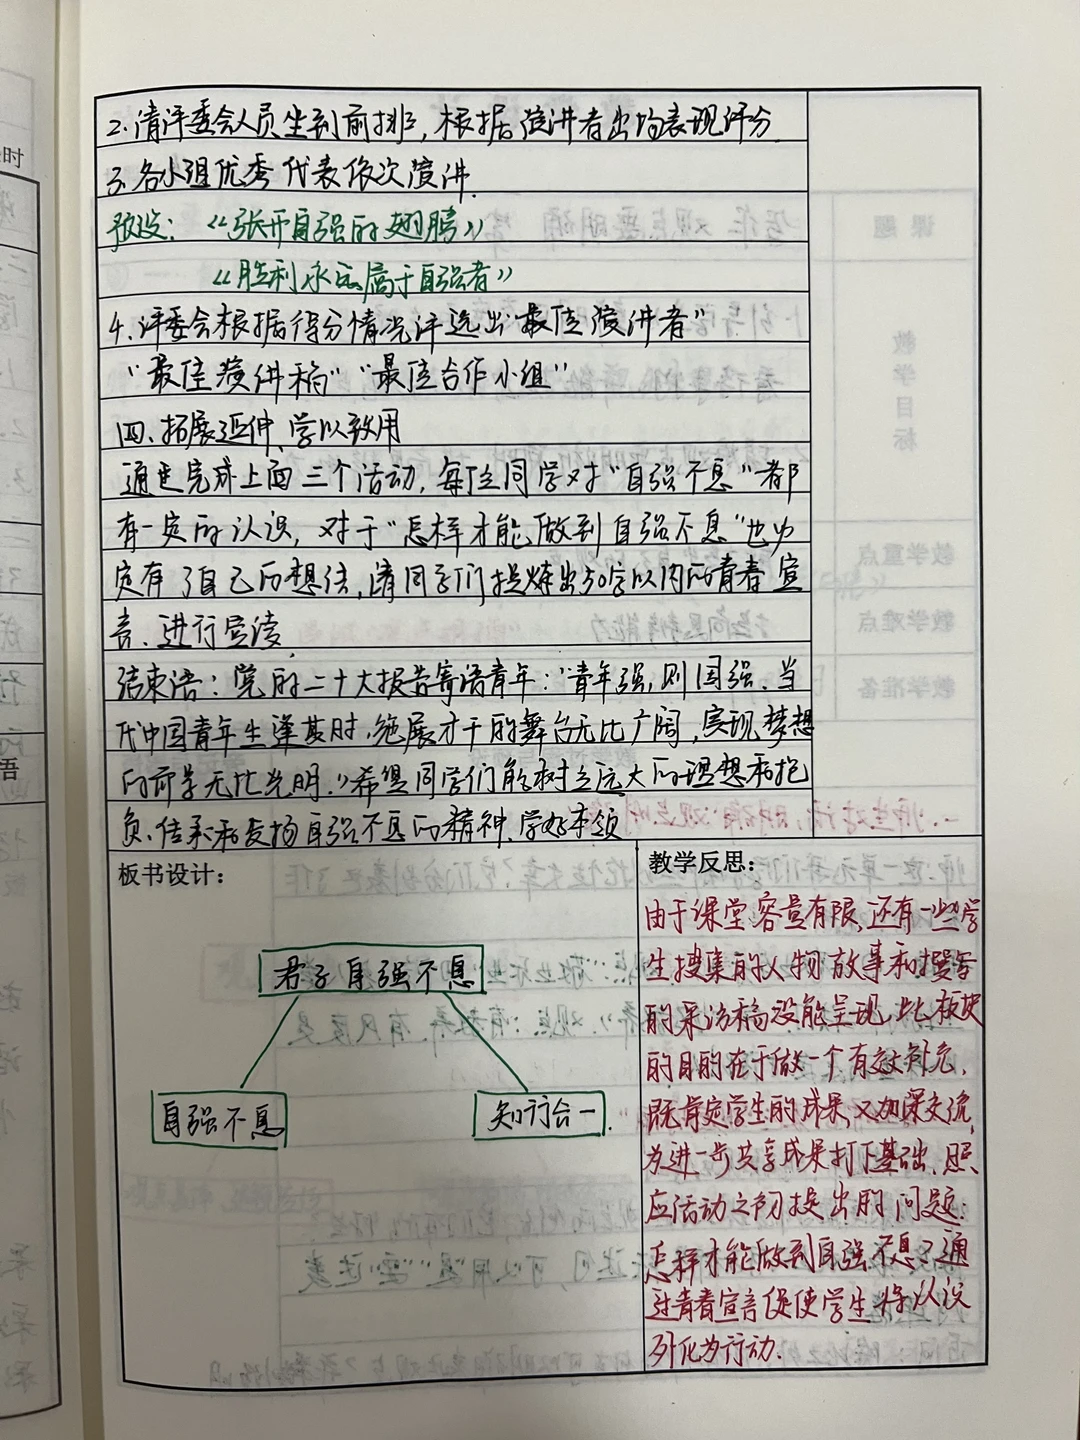 2.请评委会人员坐到前排,根据演讲者出场表现评分.
3.各小组优秀代表依次演讲.
预设:《张开自强的翅膀》
《胜利永远属于自强者》
4.评委会根据得分情况评选出"最佳演讲者"
"最佳演讲稿""最佳合作小组"
四、拓展延伸、学以致用
通过完成上面三个活动,每位同学对"自强不息"都
有一定的认识,对于"怎样才能做到自强不息"也必
定有了自己的想法,请同学们提炼出50字以内的青春宣
言、进行宣读.
结束语:党的二十大报告寄语青年:"青年强,则国强、当
代中国青年生逢其时,施展才干的舞台无比广阔,实现梦想
的前景无比光明."希望同学们能树立远大的理想和抱
负、传承和发扬自强不息的精神、学好本领
板书设计:
君子自强不息
自强不息
知行合一.
教学反思:
由于课堂容量有限,还有一些学
生搜集的人物故事和撰写
的采访稿没能呈现,此板块
的目的在于做一个有效补充,
既肯定学生的成果,又加深交流,
为进一步共享成果打下基础、照
应活动之初提出的问题:
怎样才能做到自强不息?通
过青春宣言促使学生将认识
外化为行动.
课题
教学目标
教学重点
教学难点
教学准备
时
语